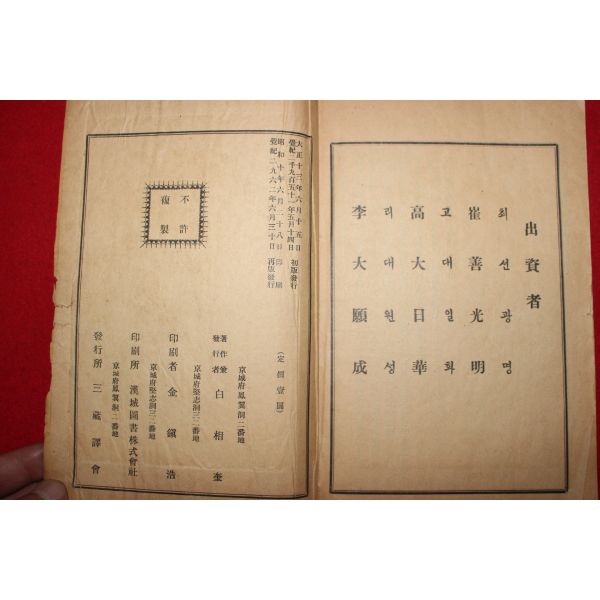 出資者
최선광명
崔善光明
고대일화
高大日華
리대원성
李大願成
大正十三年六月十五日
覺紀二千九百五十一年五月十四日 初版發行
昭和十年六月二十八日 印刷
覺紀二九六二年六月三十日 再版發行
不許
複製
(定價壹圓)
京城府鳳翼洞二番地
著作兼
發行者 白相奎
京城府堅志洞三二番地
印刷者 金鎭浩
京城府堅志洞三二番地
印刷所 漢城圖書株式會社
京城府鳳翼洞二番地
發行所 三藏譯會